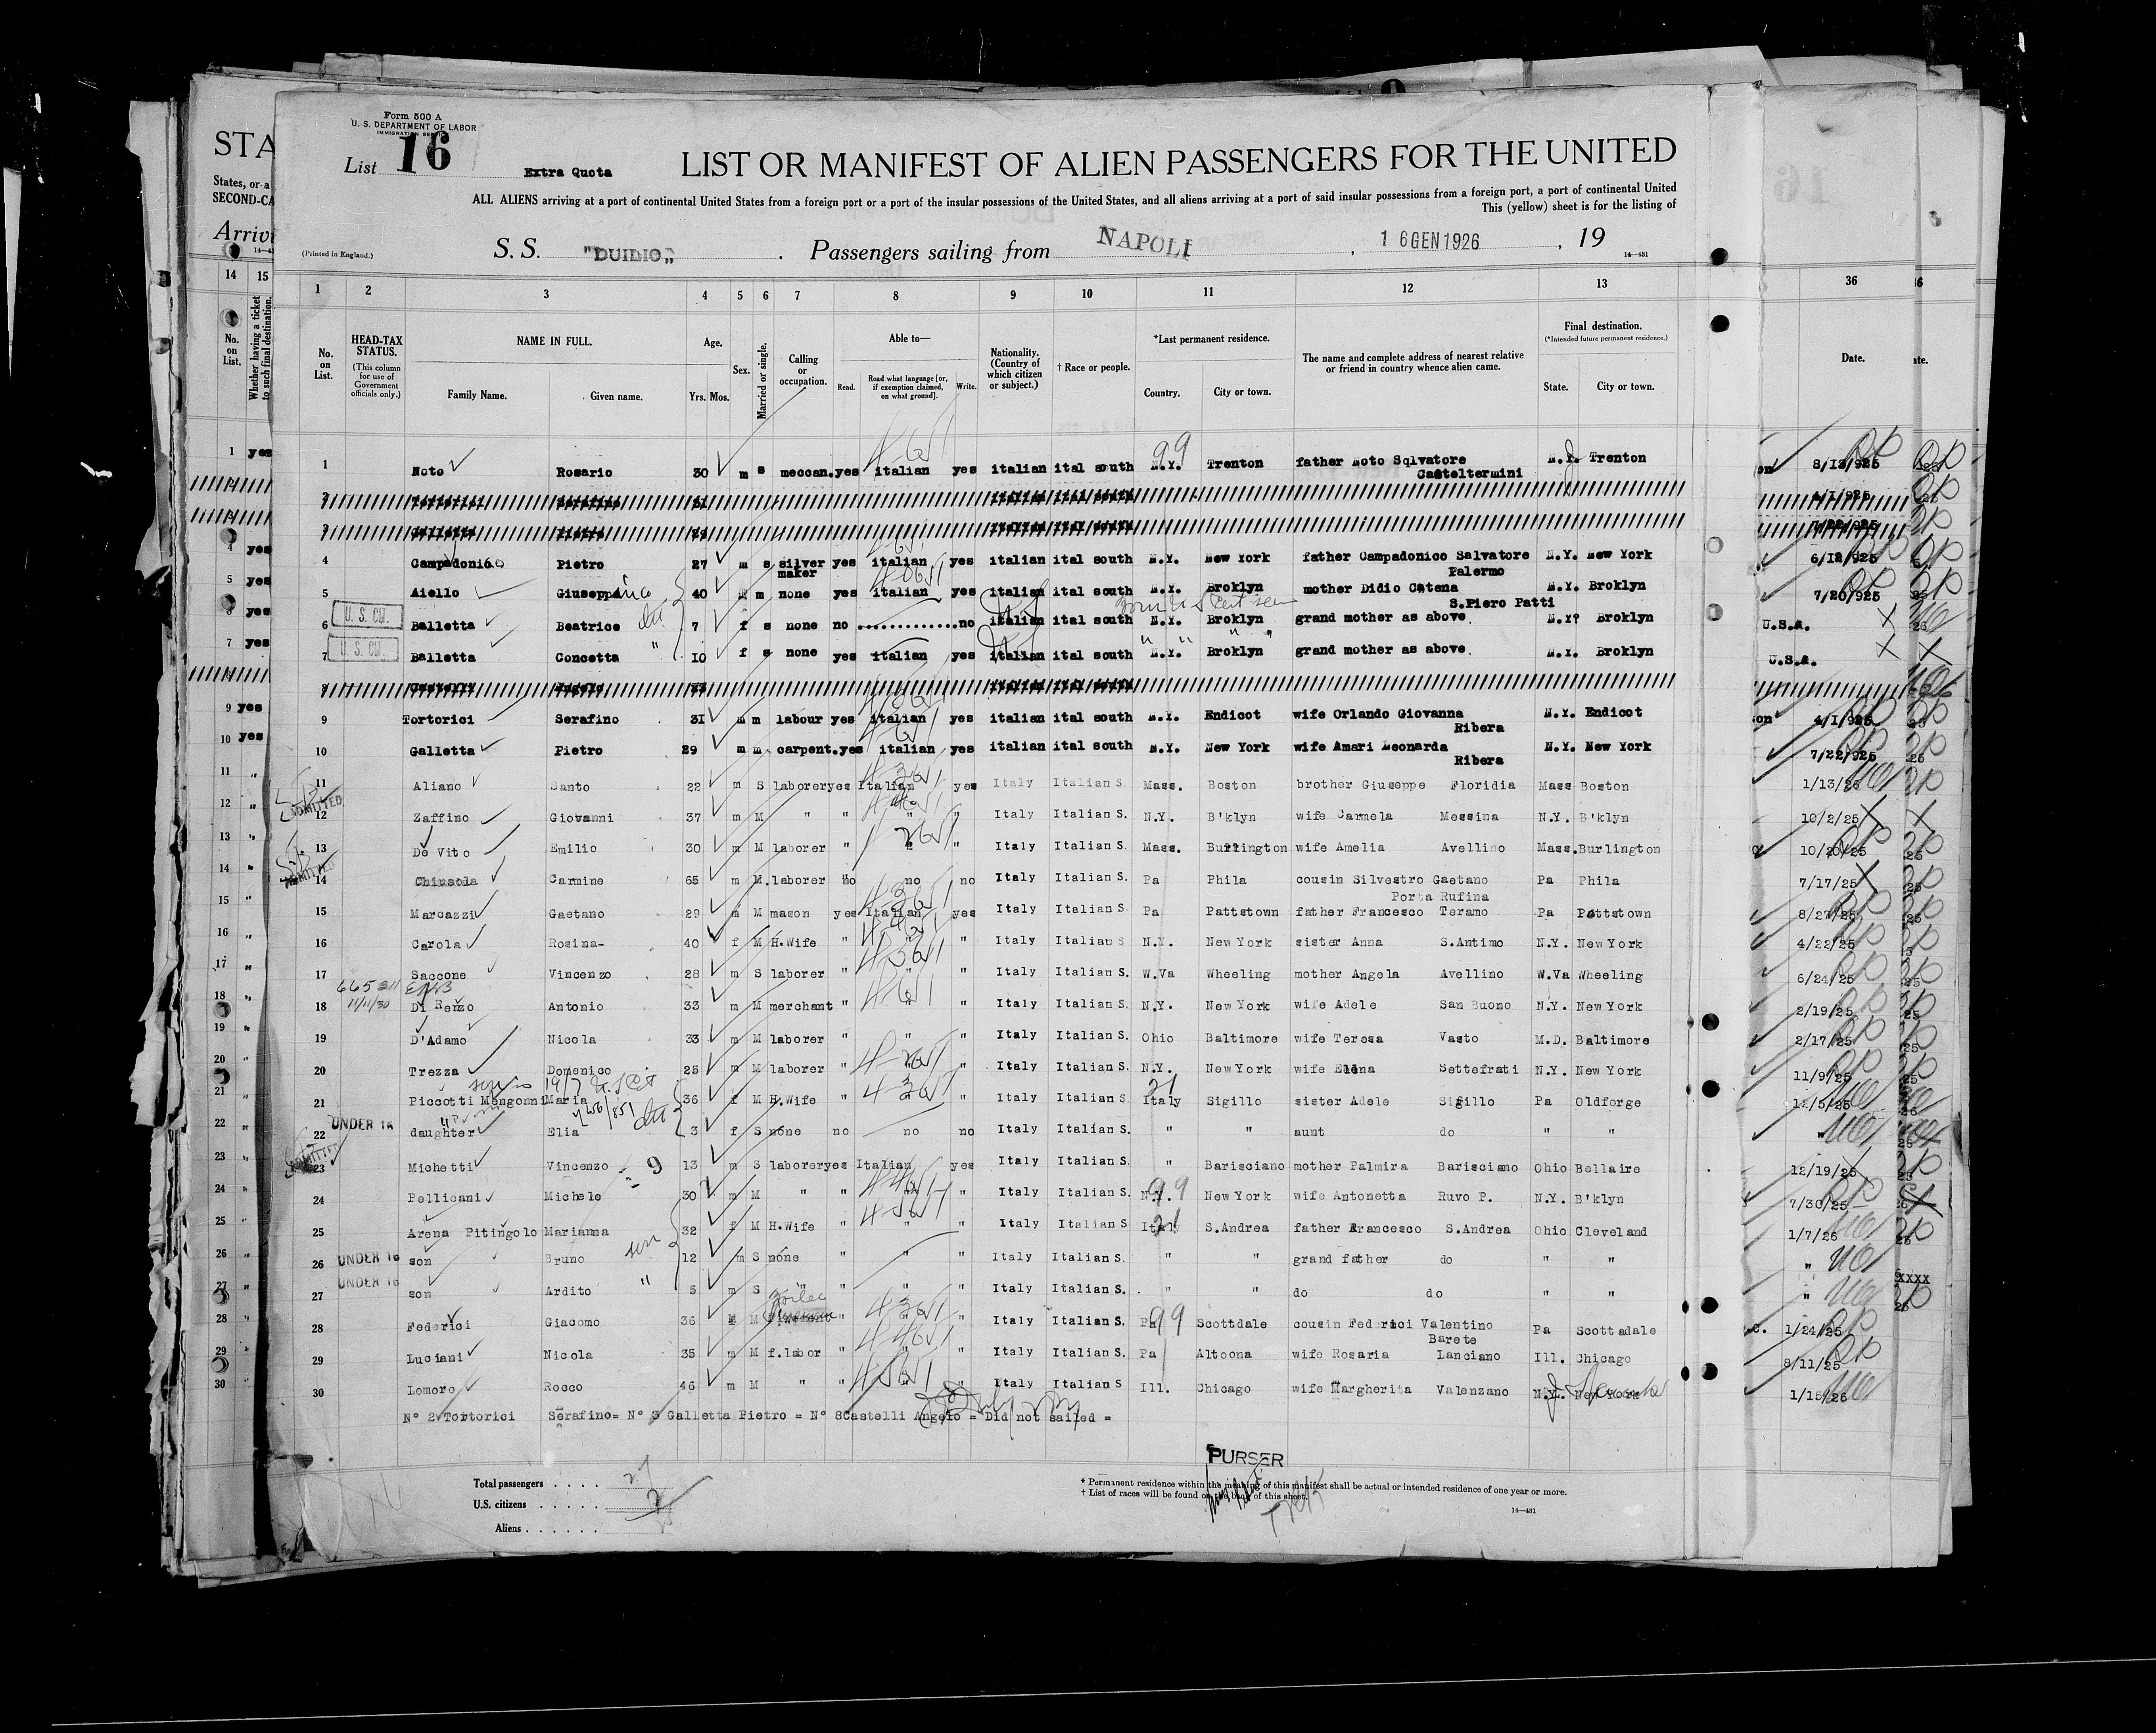 Form 500 A
U. S. DEPARTMENT OF LABOR
IMMIGRATION SERVICE
List 16
Extra Quota
LIST OR MANIFEST OF ALIEN PASSENGERS FOR THE UNITED
ALL ALIENS arriving at a port of continental United States from a foreign port or a port of the insular possessions of the United States, and all aliens arriving at a port of said insular possessions from a foreign port, a port of continental United
This (yellow) sheet is for the listing of
(Printed in England.)
S. S. "DUILIO„ . Passengers sailing from NAPOLI , 16 GEN 1926 , 19
14—431
STA
States, or a
SECOND-CA
Arrivi
14 15
No. on List.
Whether having a ticket to such final destination.
1 2 3 4 5 6 7 8 9 10 11 12 13 36
No. on List.
HEAD-TAX STATUS.
(This column for use of Government officials only.)
NAME IN FULL.
Family Name. Given name.
Age.
Yrs. Mos.
Sex.
Married or single.
Calling or occupation.
Able to—
Read. Read what language [or, if exemption claimed, on what ground]. Write.
Nationality. (Country of which citizen or subject.)
† Race or people.
*Last permanent residence.
Country. City or town.
The name and complete address of nearest relative or friend in country whence alien came.
Final destination.
(*Intended future permanent residence.)
State. City or town.
Date.
1 Noto Rosario 30 m s meccan. yes italian yes italian ital south N.Y. Trenton father Noto Sqlvatore Casteltermini N.J. Trenton 8/13/925
2 Tortorici Serafino 31 italian ital south 4/1/925
3 Galletta Pietro 29 italian ital south 7/22/925
4 Campadonico Pietro 27 m s silver maker yes italian yes italian ital south N.Y. New York father Campadonico Salvatore Palermo N.Y. New York 6/12/925
5 Aiello Giuseppina 40 m m none yes italian yes italian ital south N.Y. Broklyn mother Didio Catena S.Piero Patti N.Y. Broklyn 7/20/925
U. S. CIT.
6 Balletta Beatrice 7 f s none no no italian ital south N.Y. Broklyn grand mother as above N.Y? Broklyn U.S.A.
U. S. CIT.
7 Balletta Concetta 10 f s none yes italian yes italian ital south N.Y. Broklyn grand mother as above N.Y. Broklyn U.S.A.
8 Castelli Angelo italian ital south
9 Tortorici Serafino 31 m m labour yes italian yes italian ital south N.Y. Endicot wife Orlando Giovanna Ribera N.Y. Endicot 4/1/925
10 Galletta Pietro 29 m m carpent. yes italian yes italian ital south N.Y. New York wife Amari Leonarda Ribera N.Y. New York 7/22/925
11 Aliano Santo 22 m S laborer yes Italian yes Italy Italian S. Mass. Boston brother Giuseppe Floridia Mass Boston 1/13/26
ADMITTED
12 Zaffino Giovanni 37 m M " " " " Italy Italian S. N.Y. B'klyn wife Carmela Messina N.Y. B'klyn 10/2/25
13 De Vito Emilio 30 m M laborer " " " Italy Italian S. Mass. Burlington wife Amelia Avellino Mass. Burlington 10/20/25
ADMITTED
14 Chiusola Carmine 65 m M. laborer no no no Italy Italian S. Pa Phila cousin Silvestro Gaetano Porta Rufina Pa Phila 7/17/25
15 Marcazzi Gaetano 29 m M mason yes Italian yes Italy Italian S. Pa Pattstown father Francesco Teramo Pa Pottstown 8/27/25
16 Carola Rosina- 40 f M H.Wife " " " Italy Italian S N.Y. New York sister Anna S.Antimo N.Y. New York 4/22/25
17 Saccone Vincenzo 28 m S laborer " " " Italy Italian S. W.Va Wheeling mother Angela Avellino W.Va Wheeling 6/24/25
11/11/30
18 Di Renzo Antonio 33 m M merchant " " " Italy Italian S. N.Y. New York wife Adele San Buono N.Y. New York 2/19/25
19 D'Adamo Nicola 33 m M laborer " " " Italy Italian S. Ohio Baltimore wife Teresa Vasto M.D. Baltimore 2/17/25
20 Trezza Domenico 25 m M laborer " " " Italy Italian S. N.Y. New York wife Eldna Settefrati N.Y. New York 11/9/25
21 Piccotti Mengonni Maria 36 f M H.Wife " " " Italy Italian S Italy Sigillo sister Adele Sigillo Pa Oldforge 12/5/25
UNDER 16
22 daughter Elia 3 f S none no no no Italy Italian S. " " aunt do " " "
ADMITTED
23 Michetti Vincenzo 13 m S laborer yes Italian yes Italy Italian S. " Barisciano mother Palmira Barisciano Ohio Bellaire 12/19/25
24 Pellicani Michele 30 m M " " " " Italy Italian S. N.Y. New York wife Antonetta Ruvo P. N.Y. B'klyn 7/30/25
25 Arena Pitingolo Marianna 32 f M H.Wife " " " Italy Italian S Italy S.Andrea father Francesco S.Andrea Ohio Cleveland 1/7/26
UNDER 16
26 son Bruno 12 m S none " " " Italy Italian S. " " grand father do " " "
UNDER 16
27 son Ardito 5 m S " " " " Italy Italian S. " " do do " " "
28 Federici Giacomo 36 M M " " " Italy Italian S. Pa Scottdale cousin Federici Valentino Barete Pa Scottadale 1/24/25
29 Luciani Nicola 35 m M f.labor " " " Italy Italian S. Pa Altoona wife Rosaria Lanciano Ill. Chicago 8/11/25
30 Lomoro Rocco 46 m M " " " " Italy Italian S Ill. Chicago wife Margherita Valenzano N.Y. New York 1/15/26
N° 2 Tortorici Serafino= N° 3 Galletta Pietro = N° 8Castelli Angelo = Did not sailed =
PURSER
Total passengers . . . .
U.S. citizens . . . . . 2
Aliens . . . . . .
* Permanent residence within the meaning of this manifest shall be actual or intended residence of one year or more.
† List of races will be found on the back of this sheet.
14—431